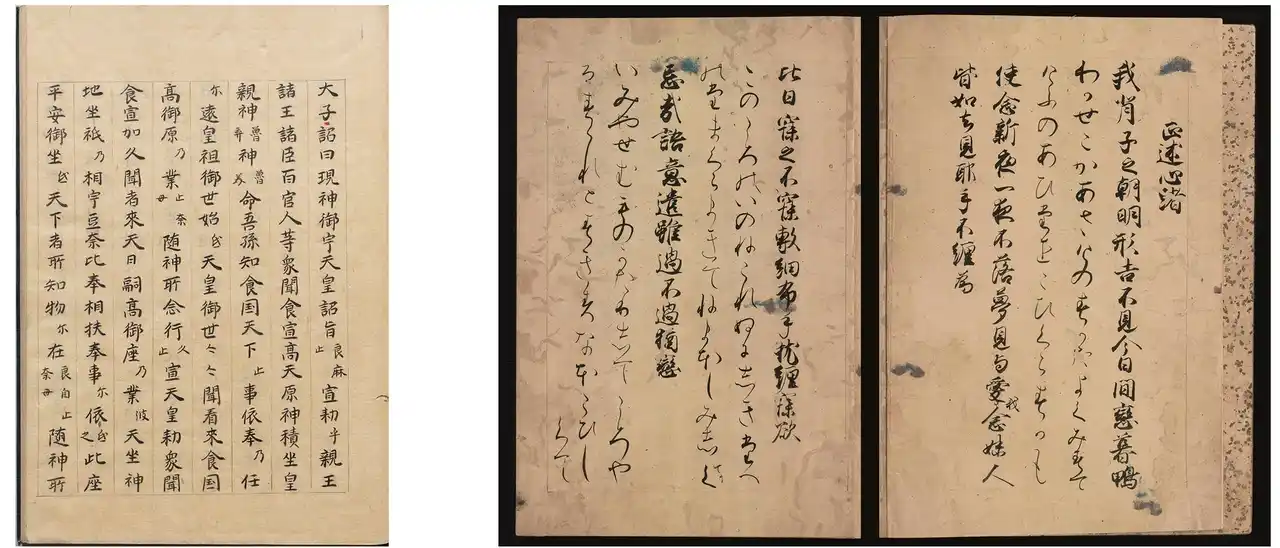 大子詔曰現神御宇天皇詔旨良麻止宣勅乎親王
諸王諸臣百官人等衆聞食宣高天原神積坐皇
親神魯弃神魯美命吾孫知食国天下止事依奉乃任
尓遠皇祖御世始弖天皇御世々々聞看來食国
高御原乃業止奈母随神所念行久止宣天皇勅衆聞
食宣加久聞者來天日嗣高御座乃業波天坐神
地坐祇乃相宇豆奈比奉相扶奉事尓依弖之此座
平安御坐弖天下者所知物尓在良自止奈母随神所
正述心渚
我背子之朝明形吉不見今日間戀暮鴨
わかせこかあさけのすかたよくみすて
けふのあひたをこひくらすかも
使念新夜一夜不落夢見与愛我念妹人
皆如去見耶手不纏為
比日寐之不寐敷細布手枕纏寐欲
このころのいのねられぬにしきたへ
のたまくらまきてねまくほしみ
忘哉語意遣雖過不過猶戀
いみやせむものかたりしてこころや
れとすきすなほこひし
くて